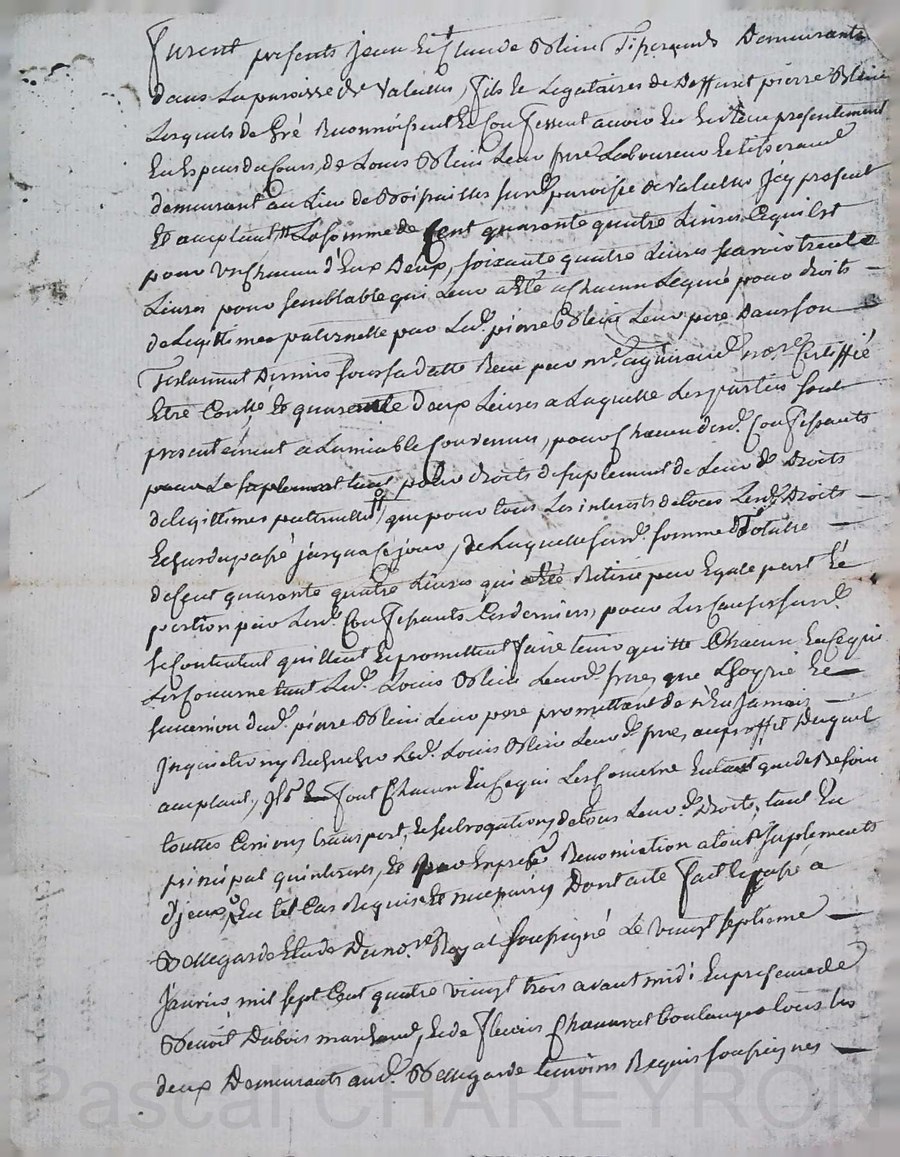 furent presents jean et Claude Blein Tisserands Demeurants
dans la paroisse de Valeilles, fils et Legataires de Deffunt pierre Blein
Lesquels de gré Reconnoissent et Confessent avoir Eu et Receu presentement
En Especes du Cours, de Louis Blein Leur frere Laboureur et tisserand
demeurant au Lieu de surd. paroisse de Valeilles Icy present
Et acceptant La somme de Cent quarante quatre Livres Ce qui Est
pour Un Chacun d'Eux Deux, soixante quatre Livres scavoir trente
Livres pour semblable qui Leur a Eté a Chacun Legué pour droits
de Legittimes paternelle par Led. pierre Blein Leur pere Dans son
Testament Dernier sous sa datte Receu par me. nore. Certiffié
Etre Contlé, Et quarante deux Livres a Laquelle Les parties sont
presentement a L'amiable Convenues, pour Chacun desd. Confessants
pour Le suplement tant pour droits de suplement de Leurd. Droits
de legittimes paternelle, que pour tous Les interets de tous Lesd. Droits
Echus du passé jusqua Ce jour, de Laquelle surd. somme Totalle
de Cent quarante quatre Livres qui a Eté Retirée par Egale part Et
portion par Lesd. Confessants Ces derniers, pour Les Causes surd.
se Contentent quittent Et promettent faire tenir quitte Chacun En Ce qui
Les Concerne tant Led. Louis Blein Leurd. frere, que L'hoyrie Et
succession dud. pierre Blein Leur pere promettant de n'En Jamais
Inquieter ny Rechercher Led. Louis Blein Leurd. frere, au proffit Duquel
acceptant, Ils font Chacun En Ce qui Les Concerne Entant que de Besoin
touttes Cessions, transport, Et subrogations de tous Leurd. Droits, tant En
principal qu'interets, Et Expresse Renonciation a tous suplements
d'jceux, En tel Cas Requis Et necessaires Dont acte fait Et passé a
Bellegarde Etude Du nore. Royal soussigné Le vingt septieme
Janvier mil sept Cent quatre vingt trois avant midi En presence de
Benoit Dubois marchand, Et de fleuris Chauvet boulanger tous les
deux Demeurants aud. Bellegarde temoins Requis soussignes
Pascal CHAREYRON